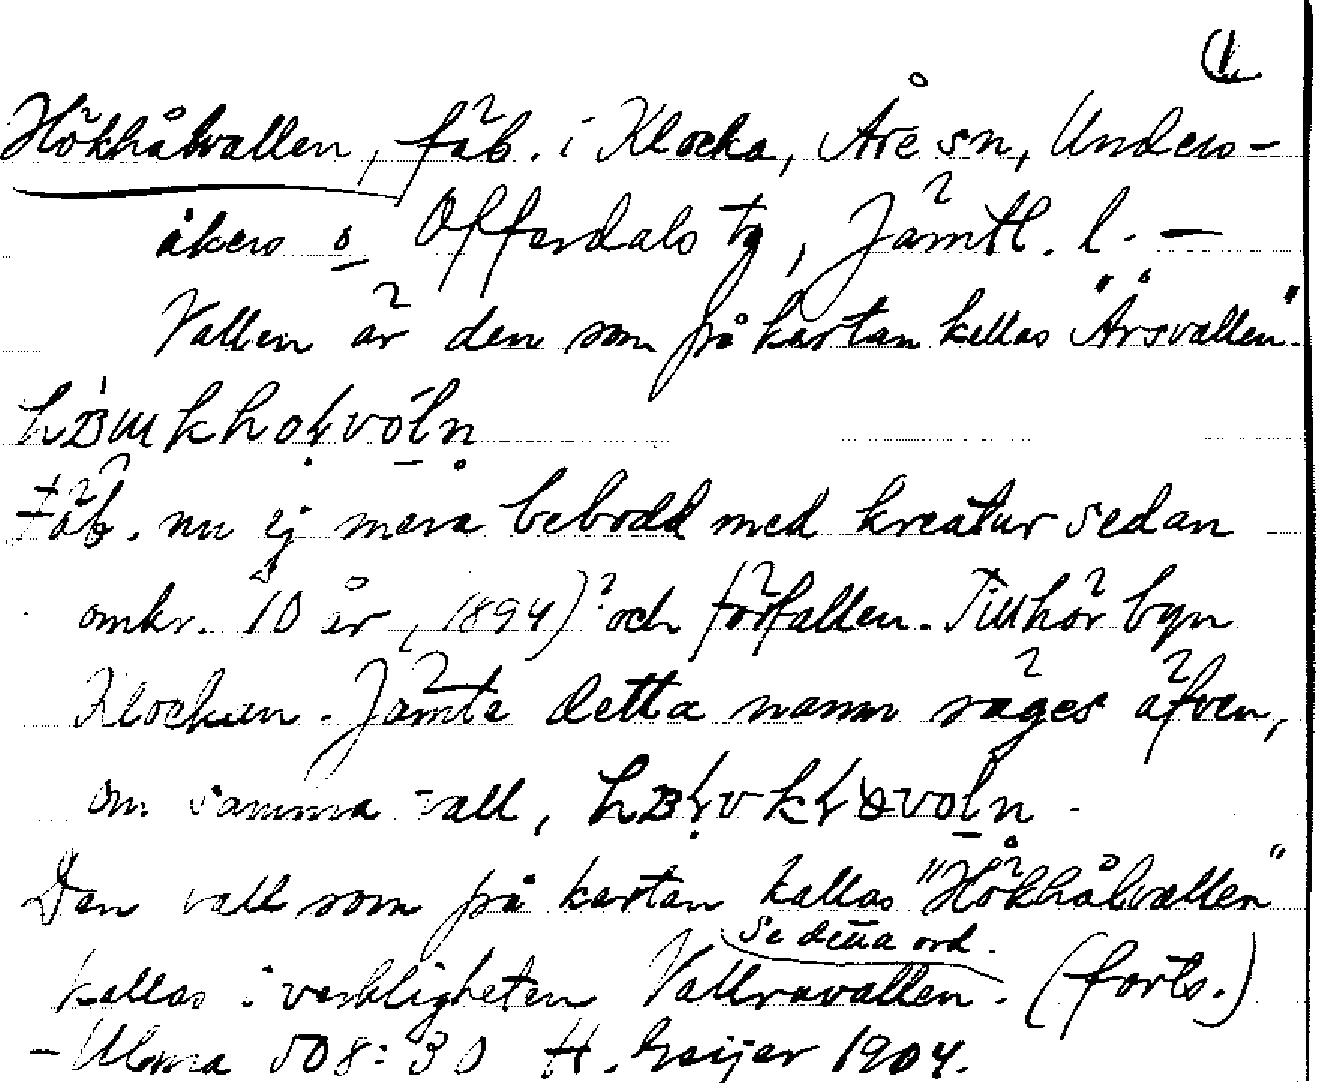 (1
Hökhålvallen, fäb. i Klocka, Åre sn, Unders-
åkers o Offerdals tg, Jämtl. l. —
Vallen är den som på kartan kallas "Årsvallen".
Fäb. nu ej mera bebodd med kreatur sedan
omkr. 10 år, (1894)? och förfallen. Tillhör byn
Klockan. Jämte detta namn säges äfven,
om samma vall,
Den vall som på kartan kallas "Hökhålvallen"
se detta ord.
kallas i verkligheten Vallravallen. (forts.)
- Ulma 508:30 H. Geijer 1904.